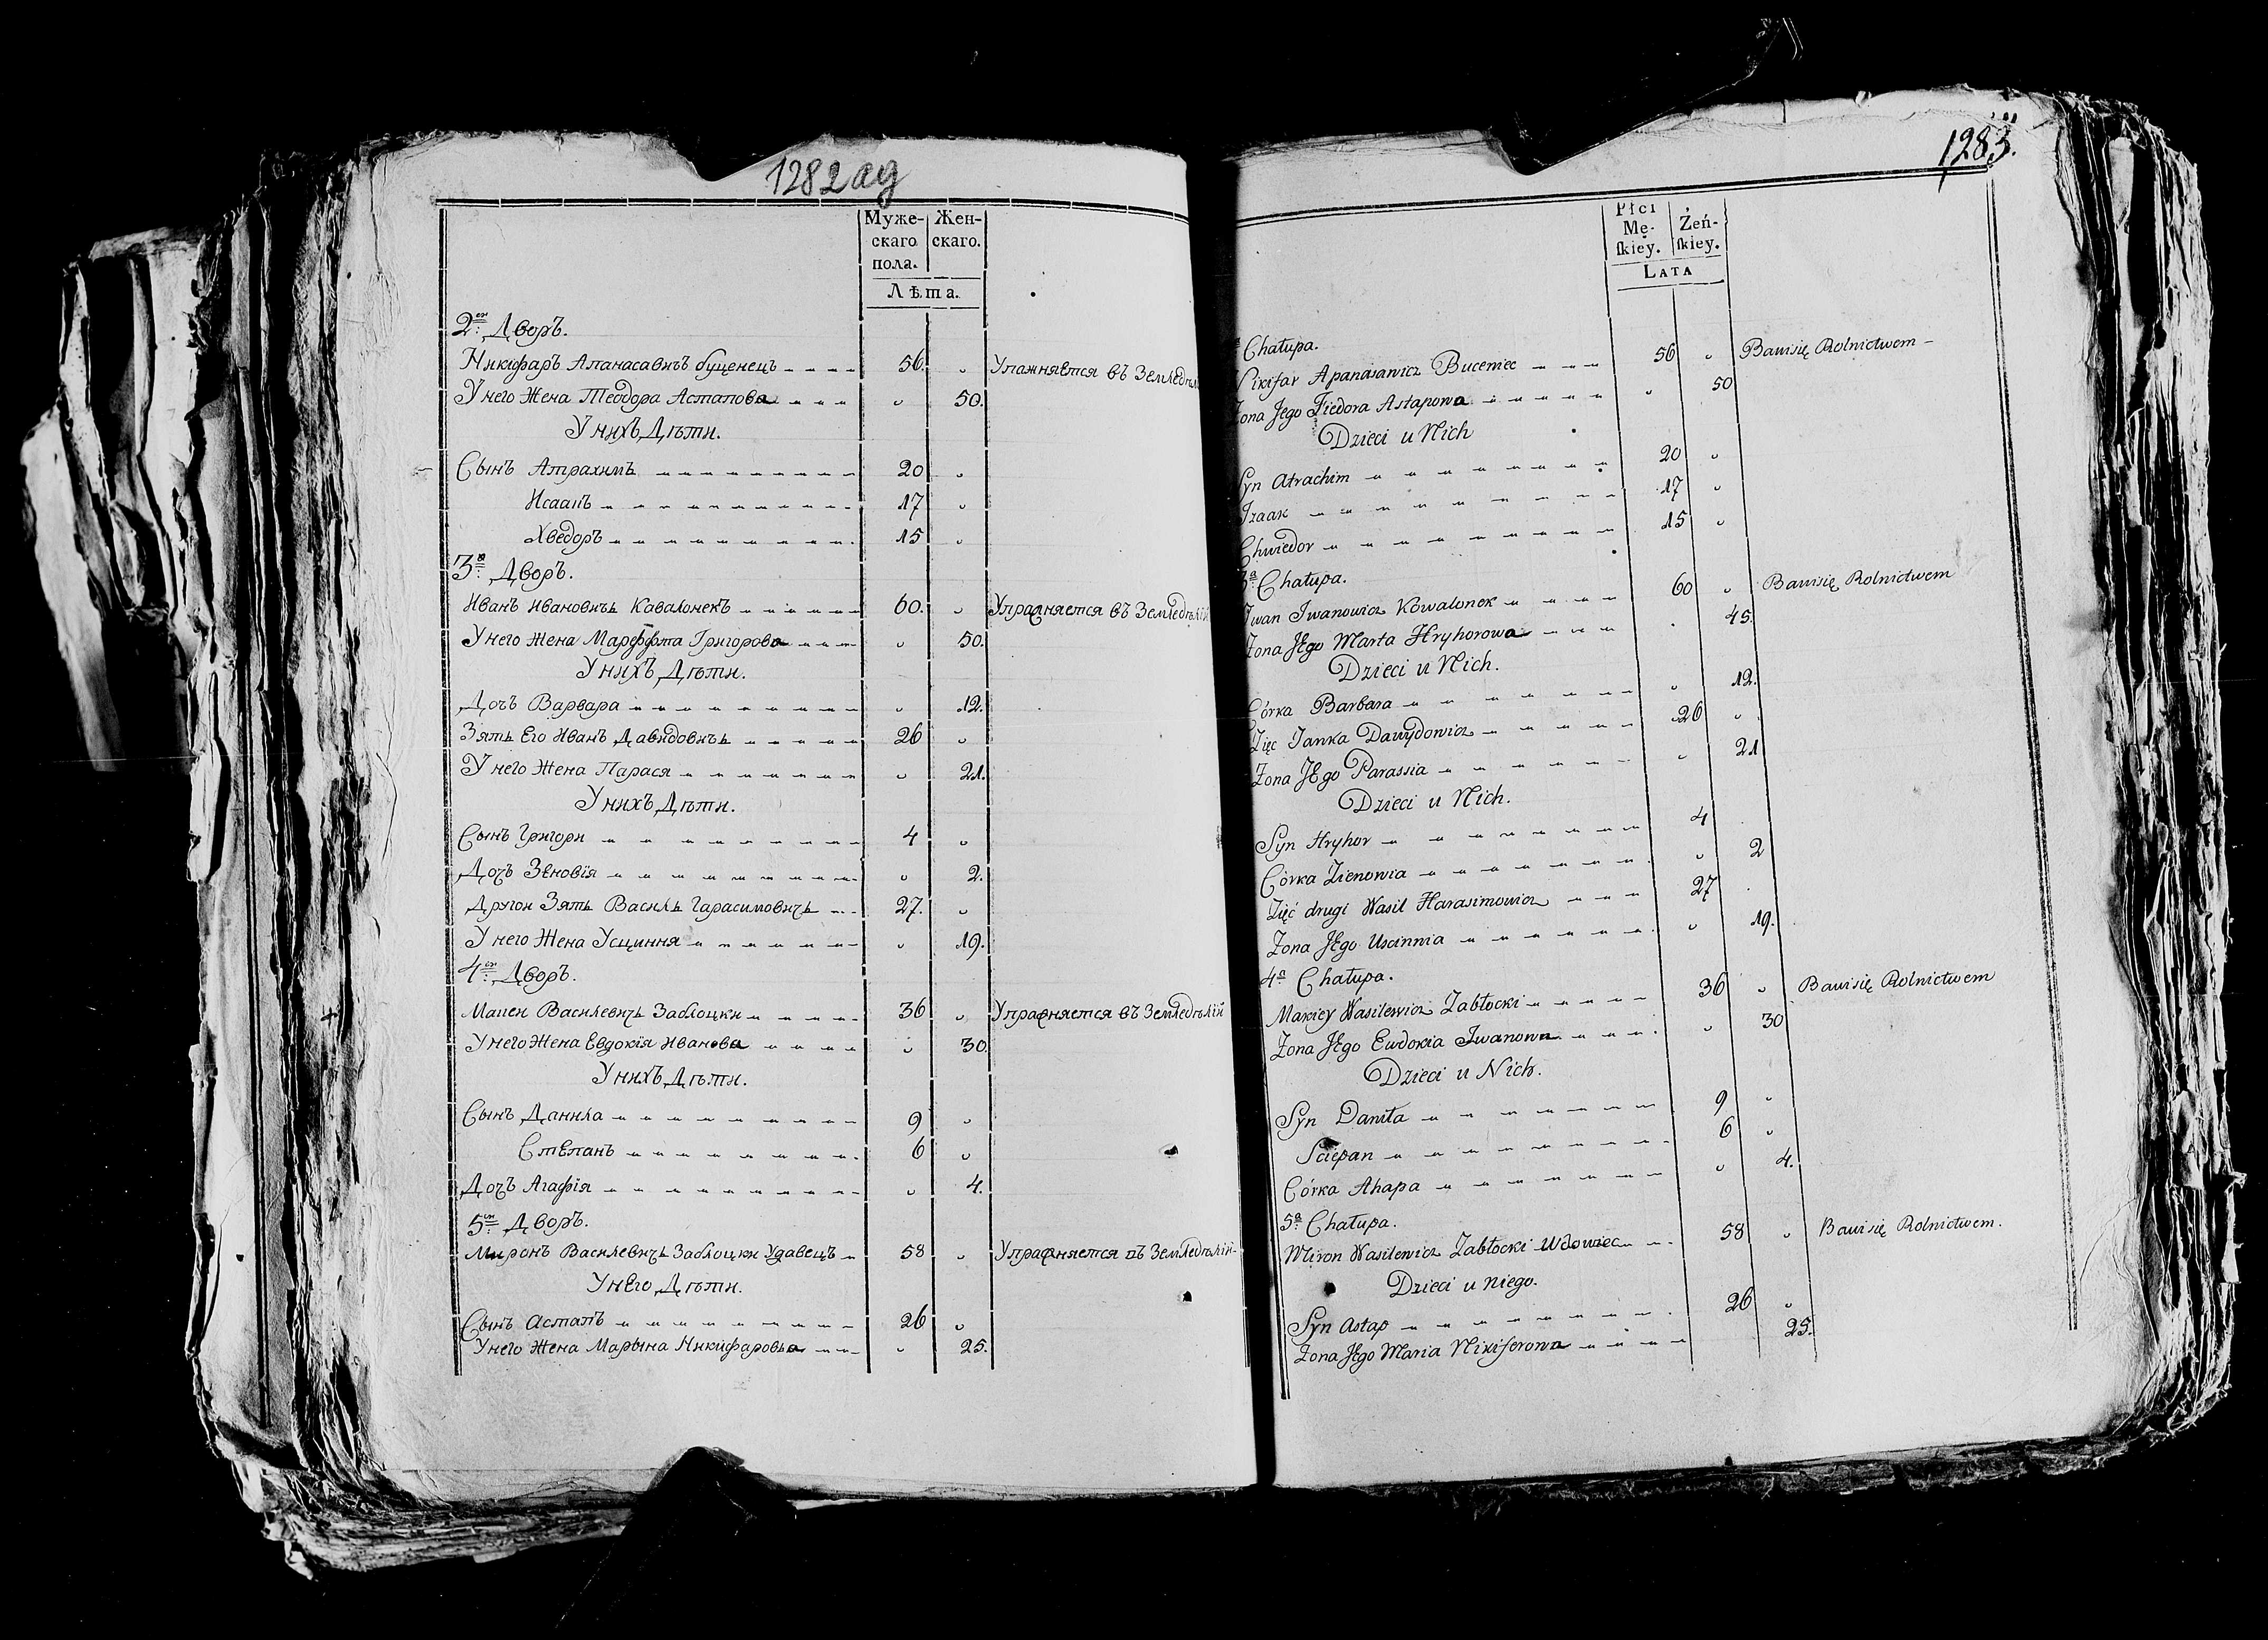 1282 ад
Муже- Жен-
скаго скаго.
пола.
Лѣта.
2ой Дворъ.
Никифаръ Апанасавичъ буценецъ 56.
Упажняется въ
У него Жена Теодора Астапова 50.
У нихъ Дѣти.
Сынъ Атрахимъ 20
Исаакъ 17
Хведоръ 15
3й Дворъ.
Иванъ Ивановичь Кавалонекъ 60. Упражняется въ Земледѣлій
У него Жена Григорова 50.
У нихъ Дѣти.
Дочъ Варвара 12.
Зять Его Иванъ Давидовичь 26
У него Жена Парася 21.
У нихъ Дѣти.
Сынъ Григори 4
Дочъ Зеновія 2.
Другои Зять Василь Гарасимовичь 27.
У него Жена Усциння 19.
4ой Дворъ.
Макеи Василевичь Заблоцки 36 Упражняется въ Земледѣлій
У него Жена Евдокія Иванова 30.
У нихъ Дѣти.
Сынъ Данила 9
Степанъ 6
Дочъ Агафія 4.
5ой Дворъ.
Миронъ Василевичь Заблоцки Удавецъ 58 Упражняется въ Земледѣлій
У него Дѣти.
Сынъ Астапъ 26
У него Жена Марына Никифаровна 25.
1283.
Płci
Mę- Żeń-
ſkiey. ſkiey.
LATA
Chałupa.
Nikifar Apanasawicz Buceniec 56 Bawi się Rolnictwem
Zona Jego Fiedora Astapowa 50
Dzieci u Nich
Syn Atrachim 20
Izaak 17
Chwiedor 15
3a Chałupa.
Iwan Iwanowicz Kowalonek 60 Bawi się Rolnictwem
Zona JEgo Marta Hryhorowa 45.
Dzieci u Nich.
Córka Barbara 12.
Zięc Janka Dawydowicz 26
Zona JEgo Parassia 21
Dzieci u Nich.
Syn Hryhor 4
Córka Zienowia 2
Zięć drugi Wasil Harasimowicz 27
Zona JEgo Uscinnia 19.
4a Chałupa.
Makiey Wasilewicz Zabłocki 36 Bawi się Rolnictwem
Zona JEgo Ewdokia Iwanowa 30
Dzieci u Nich.
Syn Daniła 9
Sciepan 6
Córka Ahapa 4.
5a Chałupa.
Miron Wasilewicz Zabłocki Wdowiec 58 Bawi się Rolnictwem.
Dzieci u niego.
Syn Astap 26
Zona JEgo Maria Nikiferowa 25.